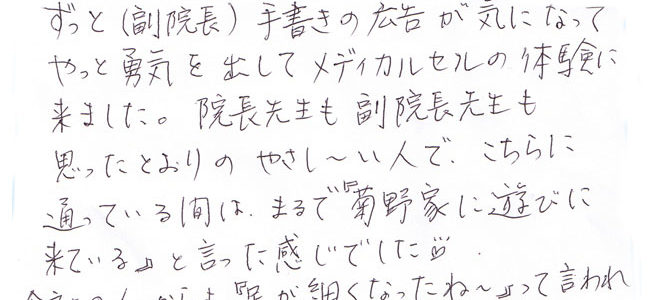 ずっと(副院長)手書きの広告が気になって
やっと勇気を出してメディカルセルの体験に
来ました。院長先生も副院長先生も
思ったとおりのやさし〜い人で、こちらに
通っている間は、まるで『菊野家に遊びに
来ている』と言った感じでした
が細くなったね〜』って言われ